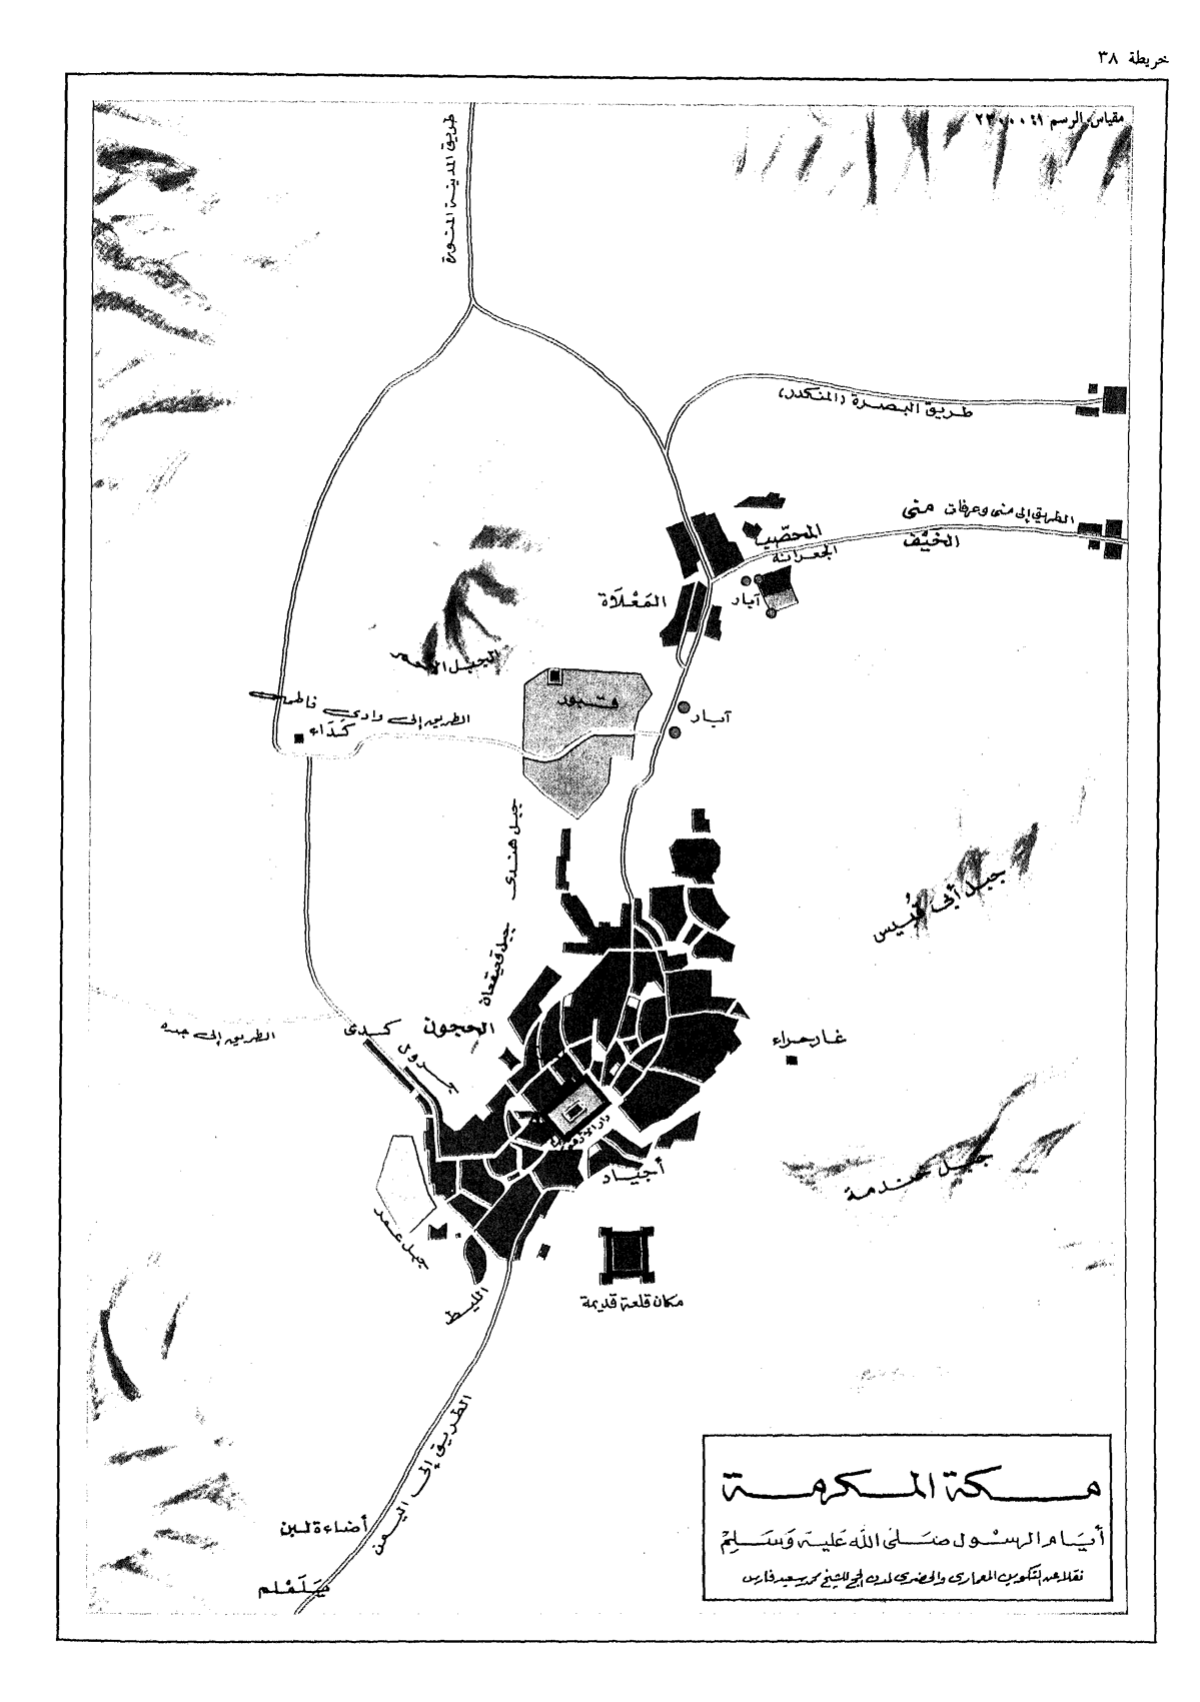 خريطة ٣٨
مقياس الرسم
طريق المدينة المنورة
طريق البصرة (المنكدر)
الطريق إلى منى وعرفات منى
الخَيْف
المحصّب
الجعرانة
آبار
المَعْلَاة
الجبل الأحمر
قبور
آبار
الطريق إلى وادي فاطمة
كَدَاء
جبل هندي
جبل أبي قُبيس
جبل قعيقعان
الحجون
كدى
جرول
الطريق إلى جده
غار حراء
دار الأرقم
أجياد
جبل خندمة
جبل عمر
مكان قلعة قديمة
الليط
الطريق إلى اليمن
أضاءة لبن
يَلَمْلم
مكة المكرمة
أيام الرسول صَلى الله عَليه وَسَلم
نقلا عن التكوين المعماري والحضري لمدن الحج للشيخ محمد سعيد فارس